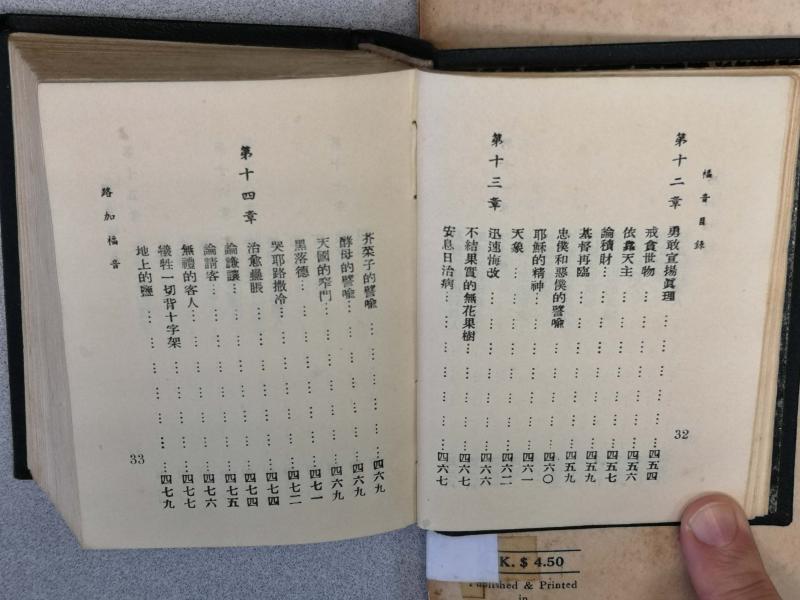 福音目錄
第十二章
勇敢宣揚眞理 … … … … … … 四五四
戒貪世物 … … … … … … 四五六
依靠天主 … … … … … … 四五七
論積財 … … … … … … 四五九
基督再臨 … … … … … … 四五九
忠僕和惡僕的譬喻 … … … … … 四六〇
耶穌的精神 … … … … … … 四六一
天象 … … … … … … … 四六二
第十三章
迅速悔改 … … … … … … 四六六
不結果實的無花果樹 … … … … 四六七
安息日治病 … … … … … … 四六七
32
芥菜子的譬喻 … … … … … 四六九
酵母的譬喻 … … … … … … 四六九
天國的窄門 … … … … … … 四六九
黑落德 … … … … … … 四七一
哭耶路撒冷 … … … … … … 四七二
第十四章
治愈蠱脹 … … … … … … 四七四
論謙讓 … … … … … … 四七四
論請客 … … … … … … 四七五
無禮的客人 … … … … … … 四七六
犧牲一切背十字架 … … … … 四七七
地上的鹽 … … … … … … 四七九
路加福音
33
K. $ 4.50
Published & Printed
in